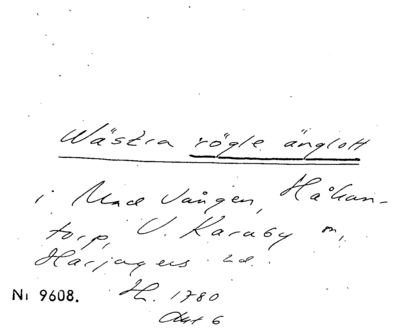 Wästra rögle änglott
i Mad Vången, Håkan-
torp, V. Karaby sn,
Harjagers hd.
Nr 9608. H. 1780
Akt 6